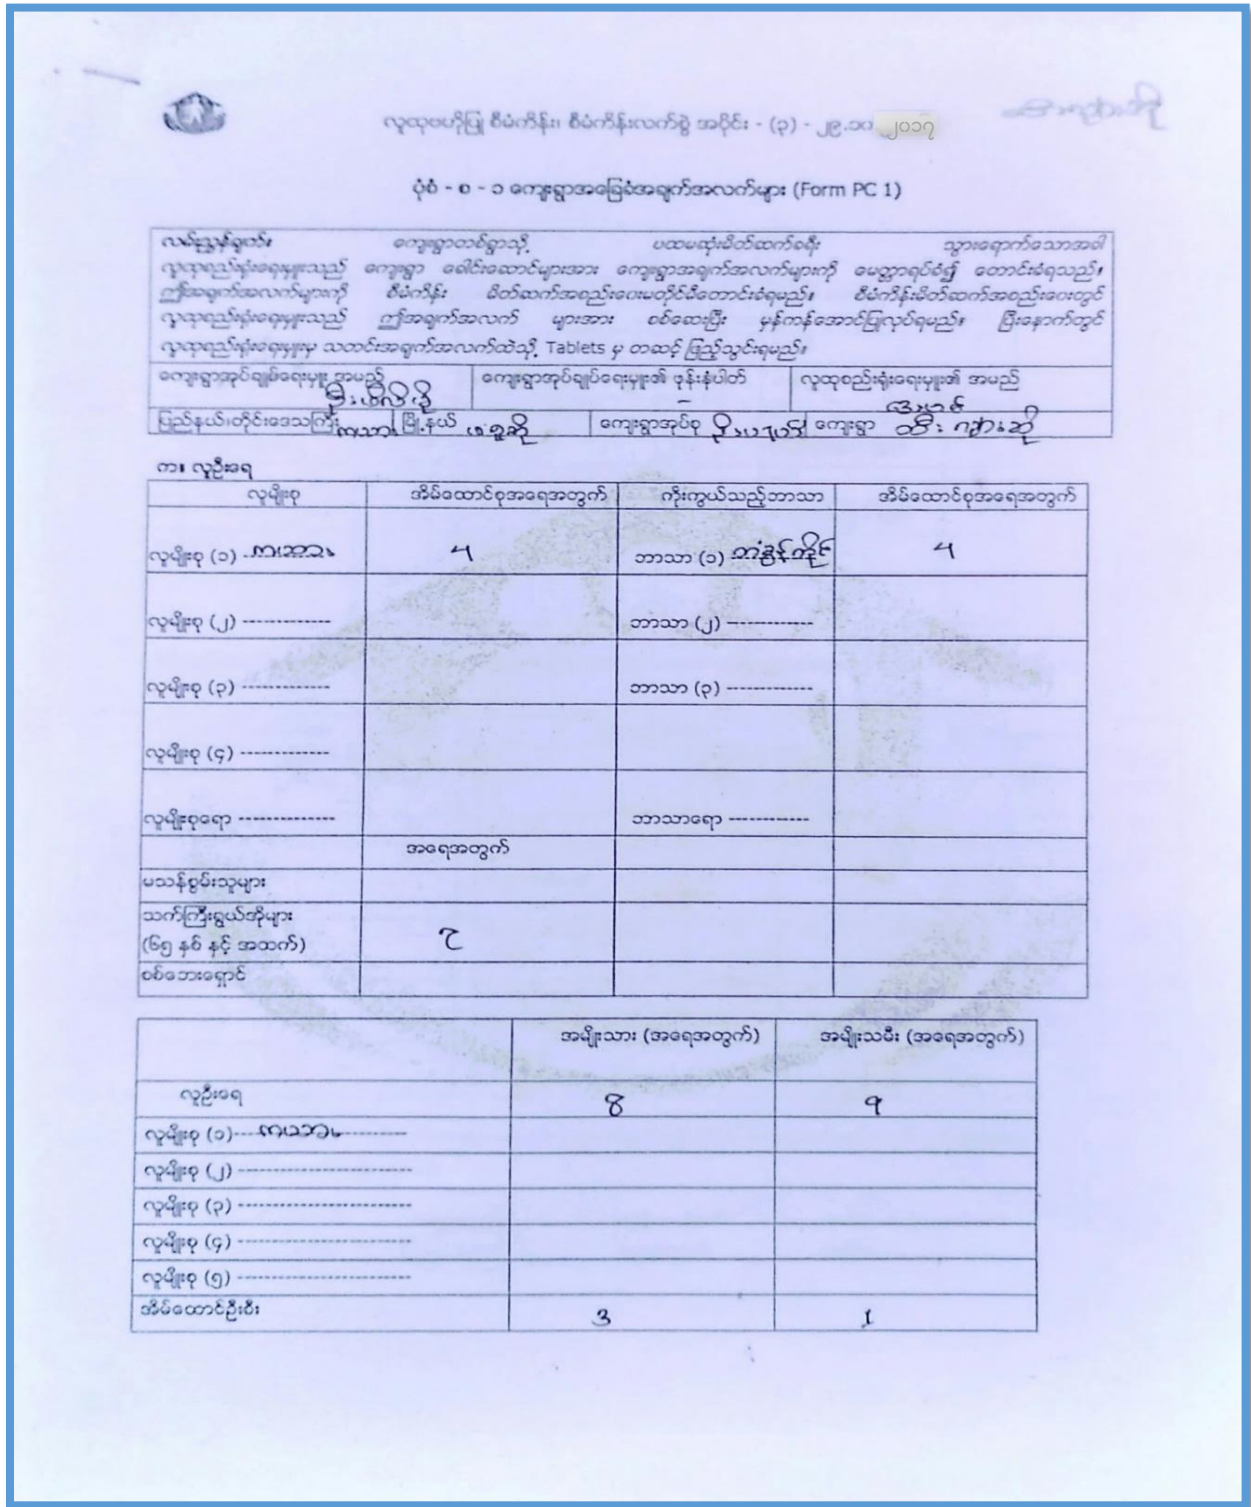 လူထုဗဟိုပြု စီမံကိန်း၊ စီမံကိန်းလက်စွဲ အပိုင်း - (၃) - ၂၉.၁၀ ၂၀၁၇
ပုံစံ - စ - ၁ ကျေးရွာအခြေခံအချက်အလက်များ (Form PC 1)
လမ်းညွှန်ချက်။ ကျေးရွာတစ်ရွာသို့ ပထမဆုံးမိတ်ဆက်ခရီး သွားရောက်သောအခါ
လူထုစည်းရုံးရေးမှူးသည် ကျေးရွာ ခေါင်းဆောင်များအား ကျေးရွာအချက်အလက်များကို မေတ္တာရပ်ခံ၍ တောင်းခံရသည်။
ဤအချက်အလက်များကို စီမံကိန်း မိတ်ဆက်အစည်းဝေးမတိုင်မီတောင်းခံရမည်။ စီမံကိန်းမိတ်ဆက်အစည်းဝေးတွင်
လူထုစည်းရုံးရေးမှူးသည် ဤအချက်အလက် များအား စစ်ဆေးပြီး မှန်ကန်အောင်ပြုလုပ်ရမည်။ ပြီးနောက်တွင်
လူထုစည်းရုံးရေးမှူးမှ သတင်းအချက်အလက်ထဲသို့ Tablets မှ တဆင့် ဖြည့်သွင်းရမည်။
ကျေးရွာအုပ်ချုပ်ရေးမှူး အမည် ကျေးရွာအုပ်ချုပ်ရေးမှူး၏ ဖုန်းနံပါတ် - လူထုစည်းရုံးရေးမှူး၏ အမည်
ပြည်နယ်၊တိုင်းဒေသကြီး ကယား မြို့နယ် ဖရူဆို ကျေးရွာအုပ်စု ကျေးရွာ
က။ လူဦးရေ
လူမျိုးစု အိမ်ထောင်စုအရေအတွက် ကိုးကွယ်သည့်ဘာသာ အိမ်ထောင်စုအရေအတွက်
လူမျိုးစု (၁) ကယား 4 ဘာသာ (၁) 4
လူမျိုးစု (၂) ------------- ဘာသာ (၂) -------------
လူမျိုးစု (၃) ------------- ဘာသာ (၃) -------------
လူမျိုးစု (၄) -------------
လူမျိုးစုရော -------------- ဘာသာရော ------------
အရေအတွက်
မသန်စွမ်းသူများ
သက်ကြီးရွယ်အိုများ
(၆၅ နှစ် နှင့် အထက်) 7
စစ်ဘေးရှောင်
အမျိုးသား (အရေအတွက်) အမျိုးသမီး (အရေအတွက်)
လူဦးရေ 8 9
လူမျိုးစု (၁)--- ကယား ----------
လူမျိုးစု (၂) --------------------------
လူမျိုးစု (၃) --------------------------
လူမျိုးစု (၄) --------------------------
လူမျိုးစု (၅) --------------------------
အိမ်ထောင်ဦးစီး 3 1